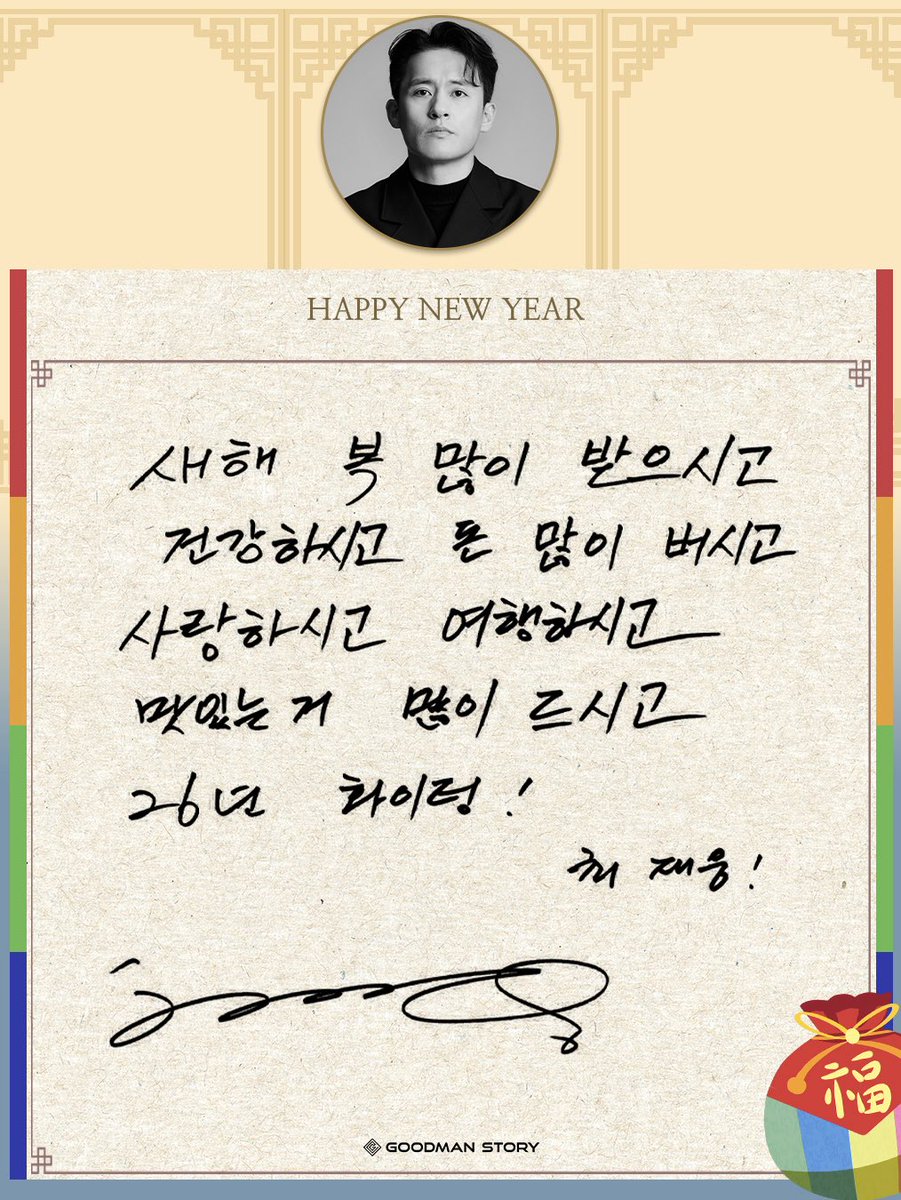 HAPPY NEW YEAR
새해 복 많이 받으시고
건강하시고 돈 많이 버시고
사랑하시고 여행하시고
맛있는거 많이 드시고
26년 화이팅!
최재웅!
GOODMAN STORY
福